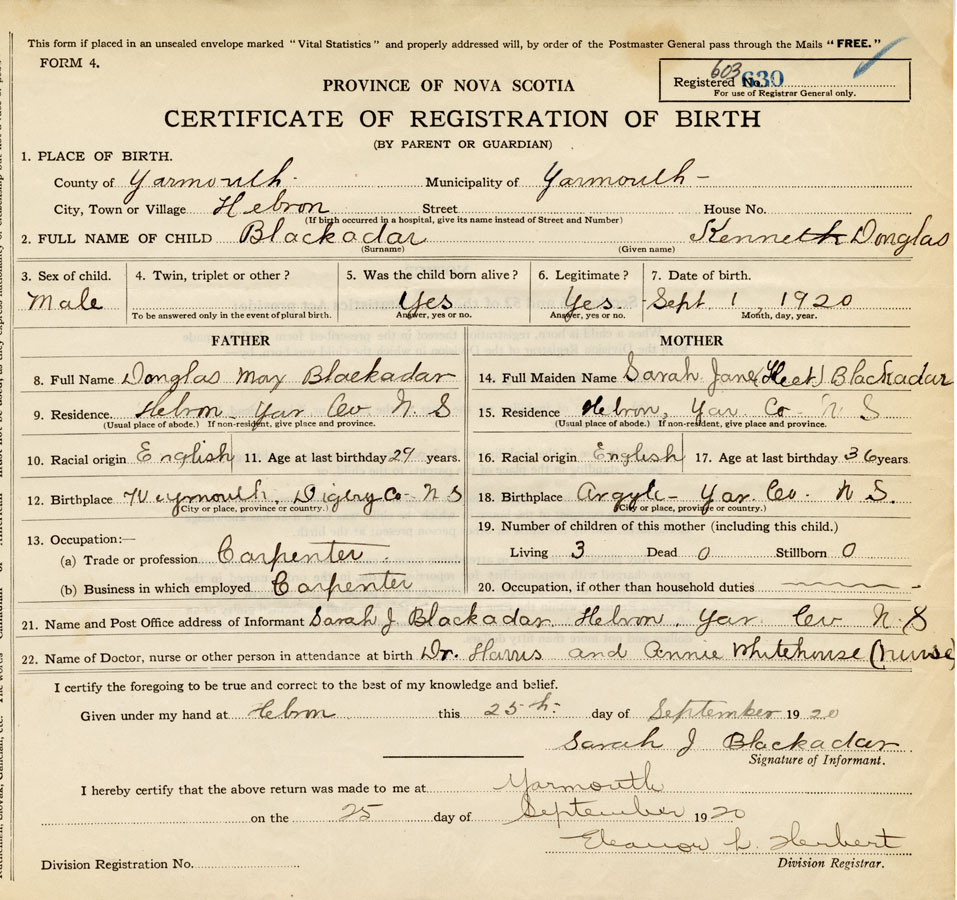 This form if placed in an unsealed envelope marked "Vital Statistics" and properly addressed will, by order of the Postmaster General pass through the Mails "FREE."
FORM 4.
603
Registered No. 630
For use of Registrar General only.
PROVINCE OF NOVA SCOTIA
CERTIFICATE OF REGISTRATION OF BIRTH
(BY PARENT OR GUARDIAN)
1. PLACE OF BIRTH.
County of Yarmouth Municipality of Yarmouth
City, Town or Village Hebron Street House No.
(If birth occurred in a hospital, give its name instead of Street and Number)
2. FULL NAME OF CHILD Blackadar Kenneth Douglas
(Surname) (Given name)
3. Sex of child. 4. Twin, triplet or other? 5. Was the child born alive? 6. Legitimate? 7. Date of birth.
Male Yes Yes Sept 1, 1920
To be answered only in the event of plural birth. Answer, yes or no. Answer, yes or no. Month, day, year.
FATHER MOTHER
8. Full Name Douglas Max Blackadar 14. Full Maiden Name Sarah Jane Blackadar
9. Residence. Hebron Yar Co N. S 15. Residence Hebron, Yar. Co - N S
(Usual place of abode.) If non-resident, give place and province. (Usual place of abode.) If non-resident, give place and province.
10. Racial origin English 11. Age at last birthday 29 years. 16. Racial origin English 17. Age at last birthday 36 years
12. Birthplace Weymouth, Co - N S 18. Birthplace Argyle - Yar. Co. N S.
(City or place, province or country.) (City or place, province or country.)
13. Occupation:— 19. Number of children of this mother (including this child.)
(a) Trade or profession Carpenter Living 3 Dead 0 Stillborn 0
(b) Business in which employed Carpenter 20. Occupation, if other than household duties
21. Name and Post Office address of Informant Sarah J Blackadar Hebron, Yar Co N. S
22. Name of Doctor, nurse or other person in attendance at birth Dr. Harris and Annie Whitehouse (nurse)
I certify the foregoing to be true and correct to the best of my knowledge and belief.
Given under my hand at Hebron this 25th day of September 1920
Sarah J Blackadar
Signature of Informant.
I hereby certify that the above return was made to me at Yarmouth
on the 25 day of September 1920
Eleanor L. Herbert
Division Registration No. Division Registrar.